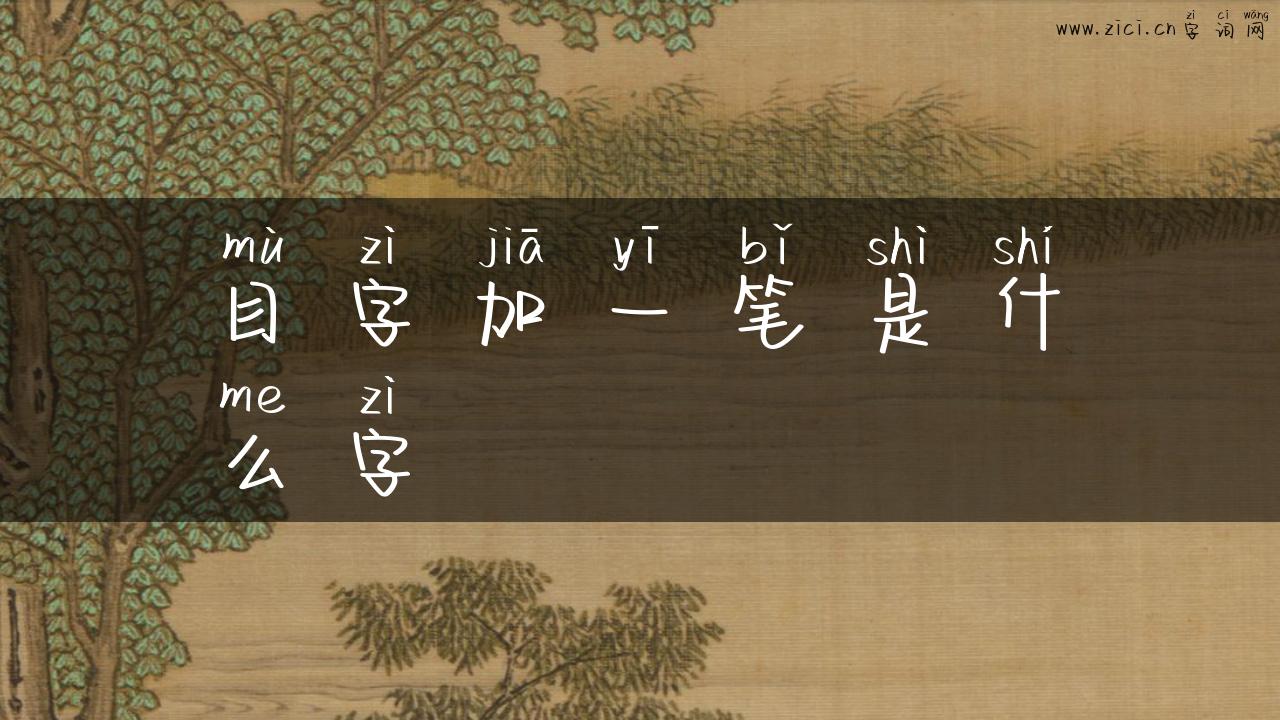 zì cí wǎng
www.zici.cn 字 词 网
mù zì jiā yī bǐ shì shí
目 字 加 一 笔 是 什
me zì
么 字